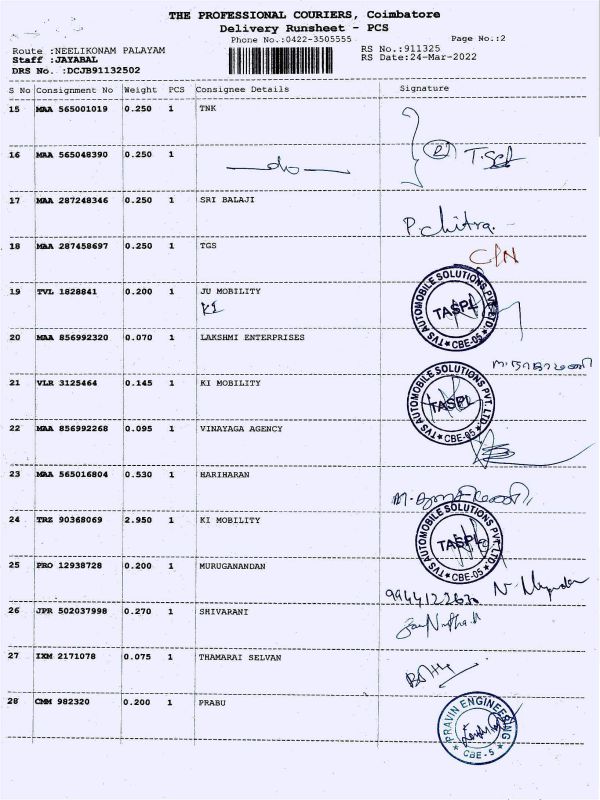 THE PROFESSIONAL COURIERS, Coimbatore
Delivery Runsheet - PCS
Phone No.:0422-3505555 Page No.:2
Route :NEELIKONAM PALAYAM RS No.:911325
Staff :JAYABAL RS Date:24-Mar-2022
DRS No. :DCJB91132502
S No Consignment No Weight PCS Consignee Details Signature
15 MAA 565001019 0.250 1 TNK
16 MAA 565048390 0.250 1 do
17 MAA 287248346 0.250 1 SRI BALAJI
P. Chitra.
18 MAA 287458697 0.250 1 TGS
19 TVL 1828841 0.200 1 JU MOBILITY
KI
TVS AUTOMOBILE SOLUTIONS PVT. LTD. TASPL CBE-05
20 MAA 856992320 0.070 1 LAKSHMI ENTERPRISES
21 VLR 3125464 0.145 1 KI MOBILITY
TVS AUTOMOBILE SOLUTIONS PVT. LTD. TASPL CBE-05
22 MAA 856992268 0.095 1 VINAYAGA AGENCY
23 MAA 565016804 0.530 1 HARIHARAN
24 TRZ 90368069 2.950 1 KI MOBILITY
TVS AUTOMOBILE SOLUTIONS PVT. LTD. TASPL CBE-05
25 PRO 12938728 0.200 1 MURUGANANDAN
9944122630
26 JPR 502037998 0.270 1 SHIVARANI
27 IXM 2171078 0.075 1 THAMARAI SELVAN
28 CMM 982320 0.200 1 PRABU
PRAVIN ENGINEERING CBE-5